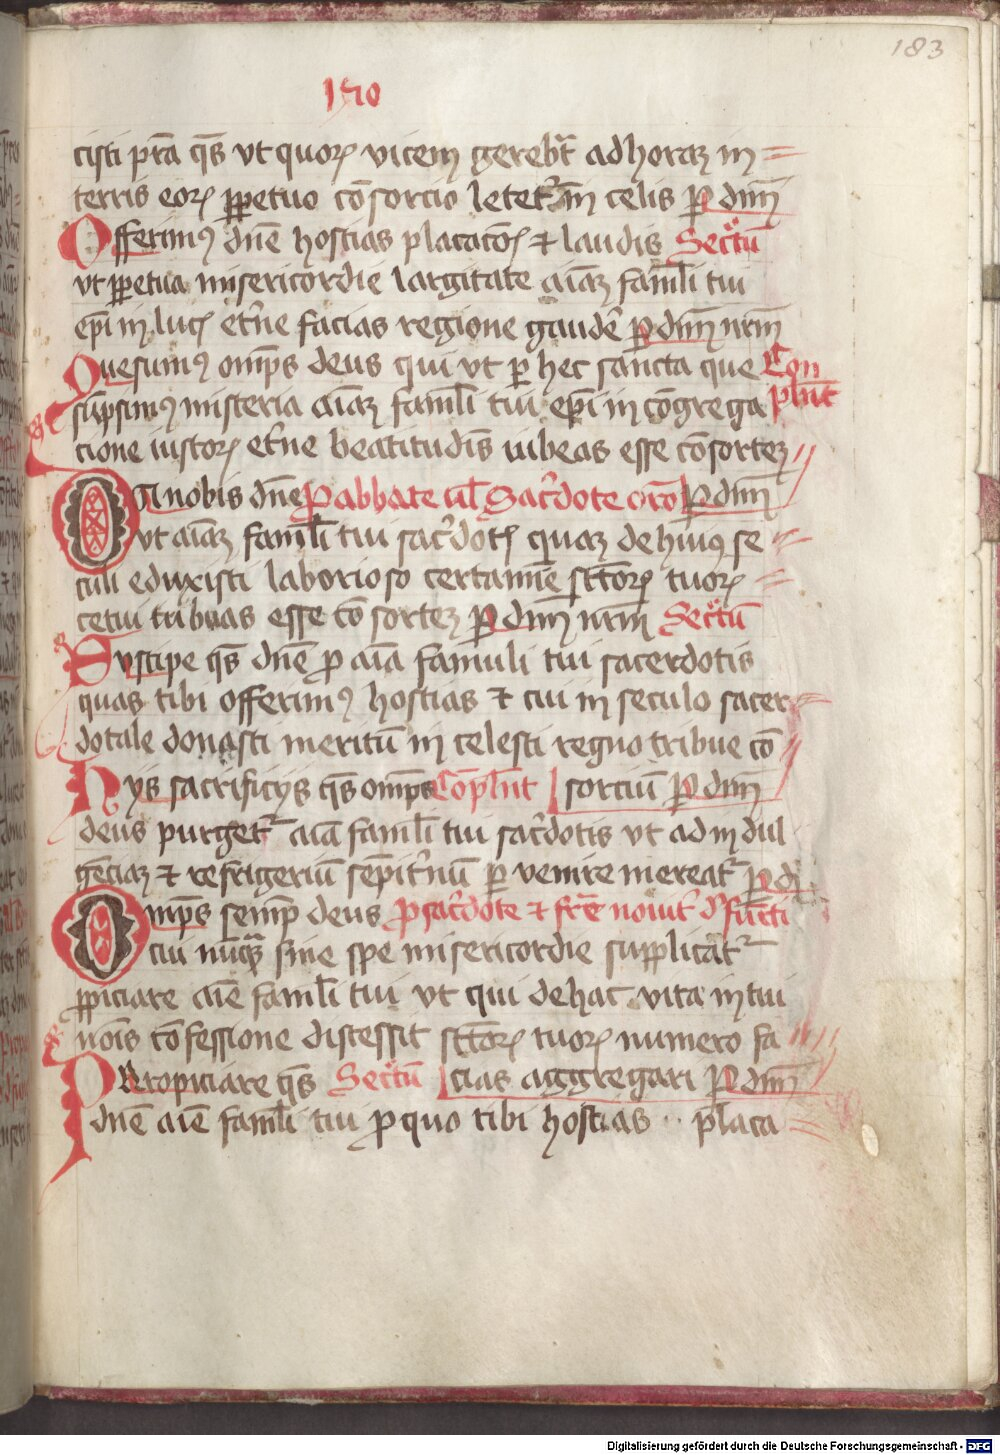 183
170
cisti pr̄a qs̄ vt quoꝝ vicem gereb̄t ad horaꝫ in
terris eoꝝ ꝑpetuo cōsorcio letet᷑ in celis ꝑ dn̄m
Offerimꝰ dn̄e hostias placacōꝭ ⁊ laudis Secr̄tū
vt ꝑpetua misericordie largitate aīaꝫ famł̄i tui
ep̄i in lucꝭ et̄ne facias regione gaudē ꝑ dn̄m nr̄m
Quesumꝰ omp̄s deus qui vt ꝑ hec sancta que Con
sūpsimꝰ misteria aīaꝫ famł̄i tui ep̄i in cōgrega płnt
cione iustoꝝ et̄ne beatitudīs iubeas esse cōsorteꝫ
Da nobis dn̄e P abbate uł Sac̄dote oro ꝑ dn̄m
vt aīaꝫ famł̄i tui sac̄dotꝭ quaꝫ de huiꝰ se
culi eduxisti laborioso certamīe sc̄toꝝ tuoꝝ
cetui tribuas esse cōsorteꝫ ꝑ dn̄m nr̄m Secr̄tū
Suscipe qs̄ dn̄e ꝓ aīa famuli tui sacerdotis
quas tibi offerimꝰ hostias ⁊ cui in seculo sacer
dotale donasti meritū in celesti regno tribue cō
Hys sacrificys qs̄ omp̄s Cōpłnt sorciū ꝑ dn̄m
deus purget᷑ aīa famł̄i tui sac̄dotis vt ad indul
gēciaꝫ ⁊ refrigeriū sēpit̄nū ꝑ venire mereat᷑ ꝑ d
Omp̄s semꝑ deus ꝓ sac̄dote ⁊ fr̄e nouit̄ defūcti
cui nūqꝫ sine spe misericordie supplicat᷑
ꝓpiciare aīe famł̄i tui vt qui de hac vita in tui
nōis cōfessione discessit sc̄toꝝ tuoꝝ numero fa
PRropiciare qs̄ Secr̄tū cias aggregari ꝑ dn̄m
dn̄e aīe famł̄i tui ꝓ quo tibi hostias placa
Digitalisierung gefördert durch die Deutsche Forschungsgemeinschaft - DFG